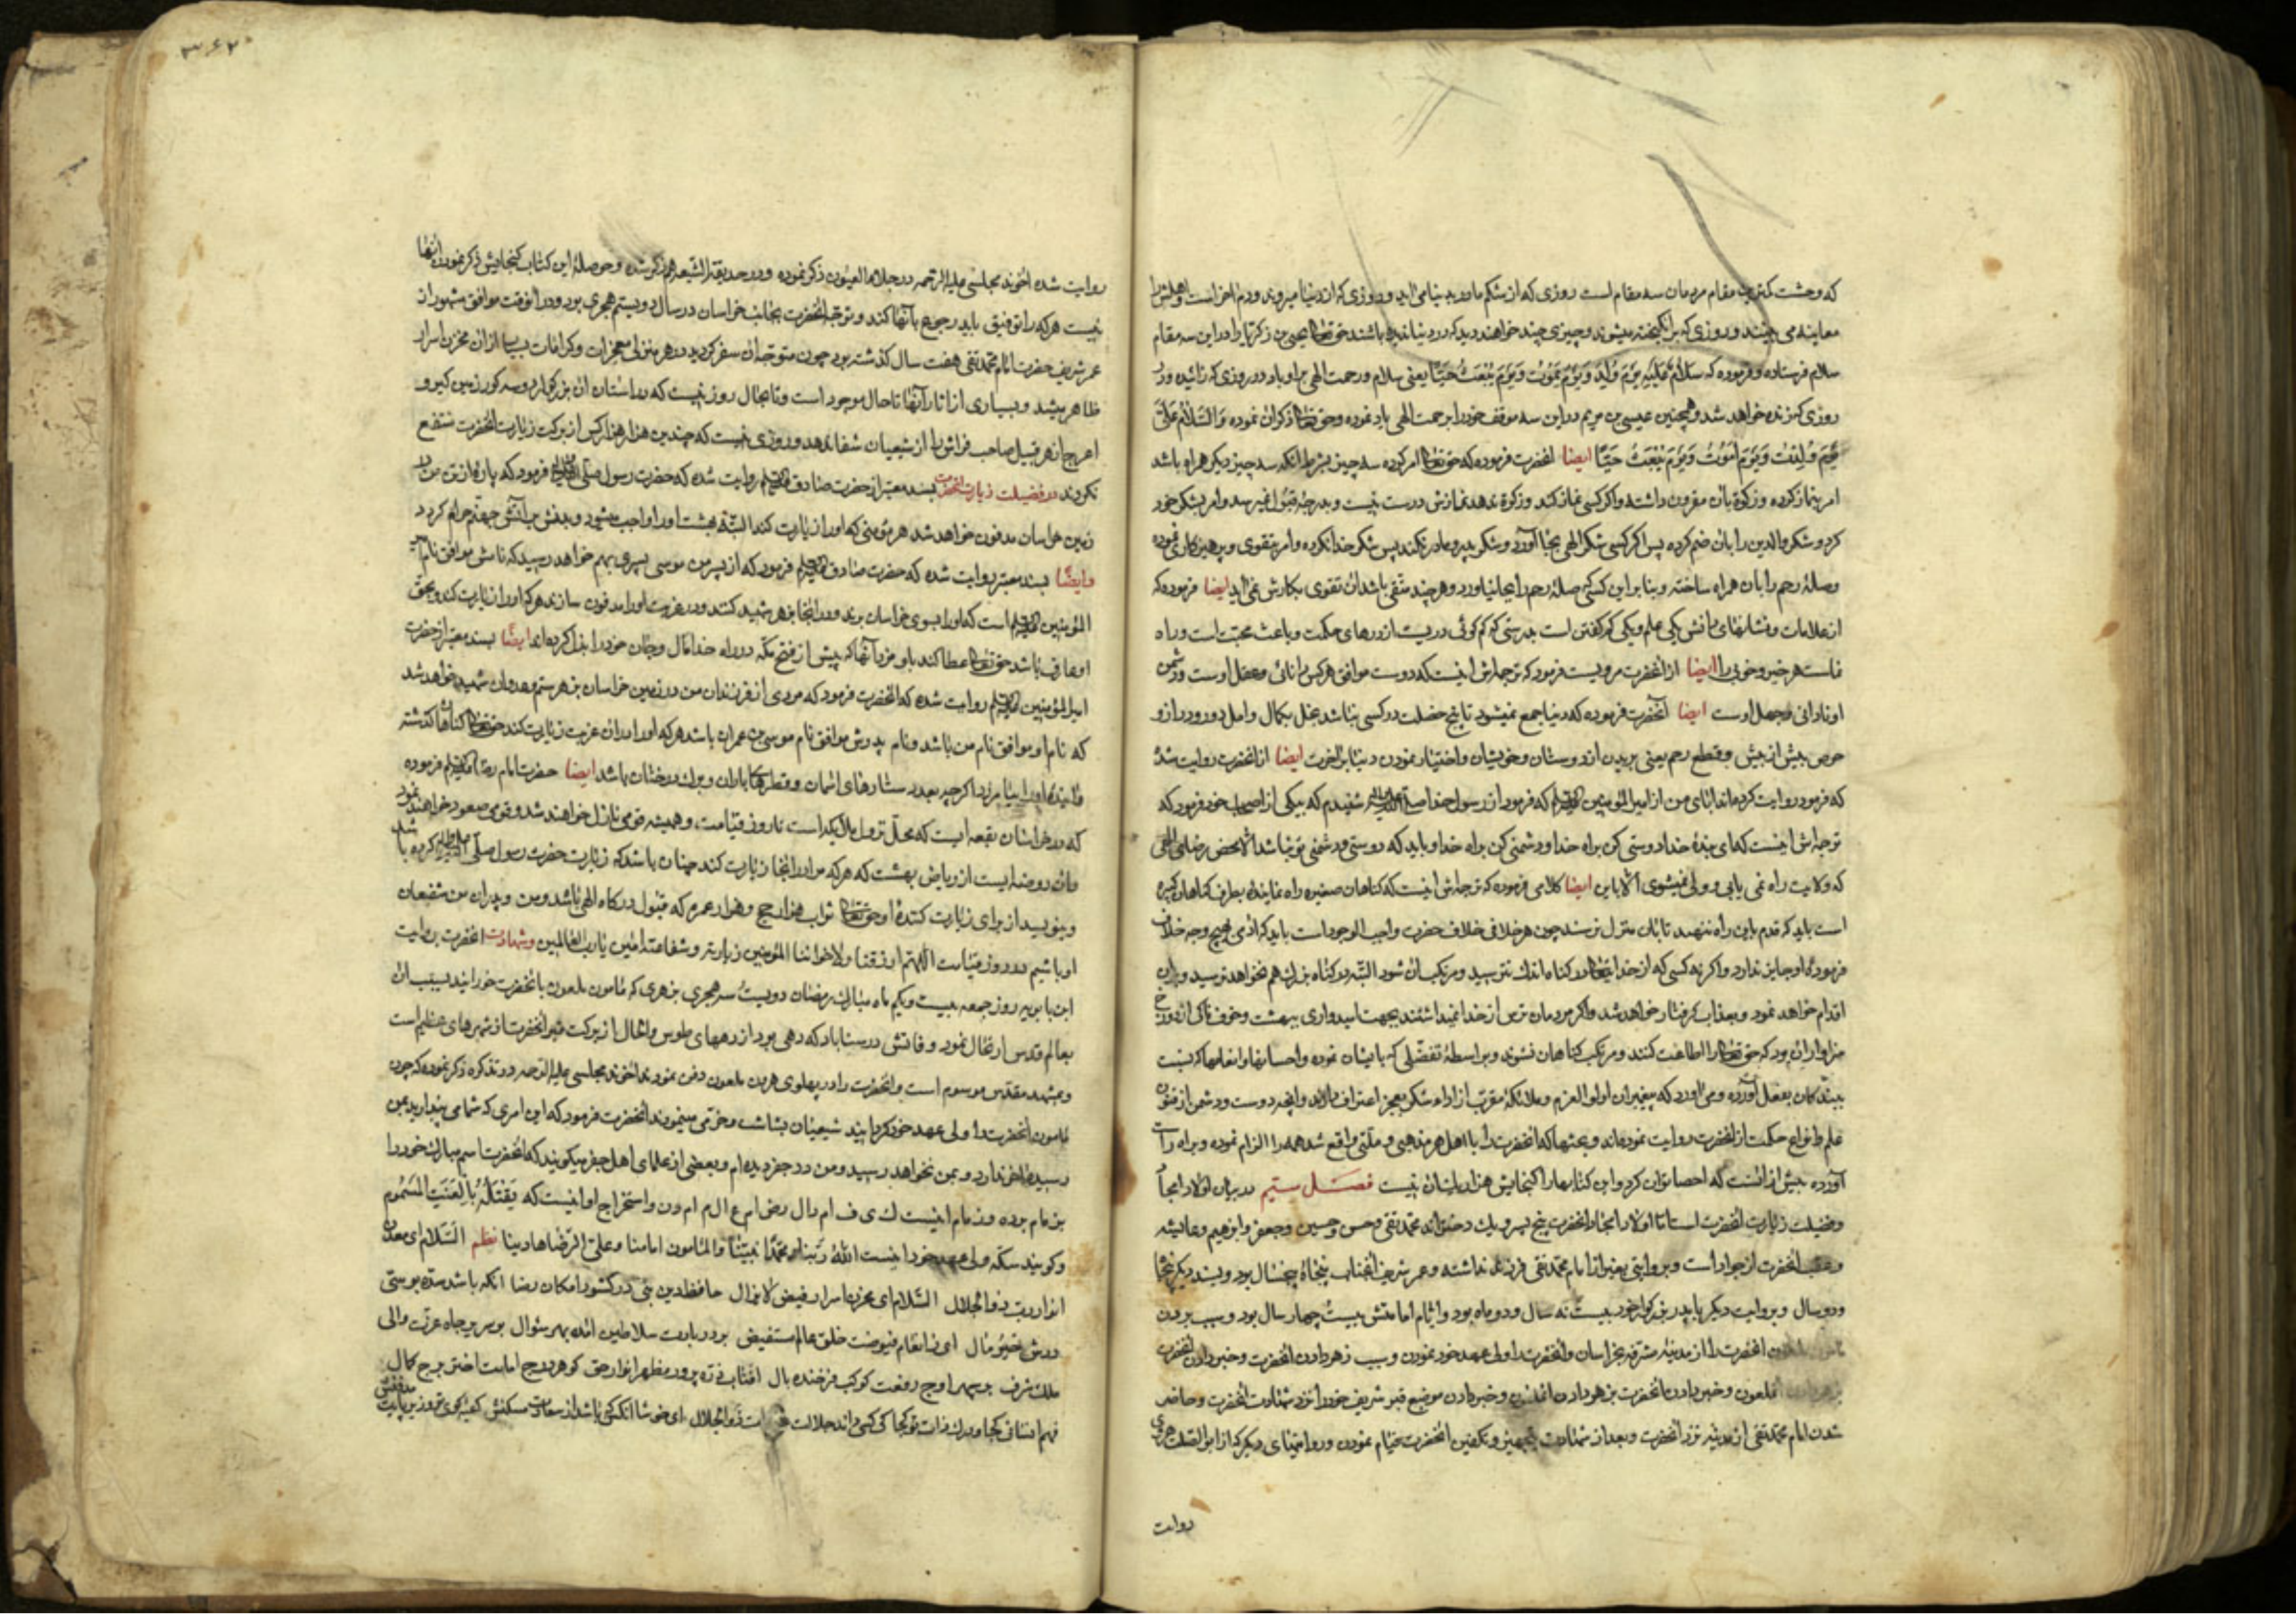 که وحشت مقام مردمان سه مقام است روزی که از شکم مادر بدنیا می آید و روزی که از دنیا میرود و دم آخر است و اهلش را
معاینه می بیند و روزی که برانگیخته میشوند و چیزی چند خواهند دید که در دنیا ندیده باشند حق تعالی یحیی بن زکریا را در این سه مقام
سلام فرستاده و فرموده که سَلامٌ عَلَیْهِ یَوْمَ وُلِدَ وَیَوْمَ یَمُوتُ وَیَوْمَ یُبْعَثُ حَیّاً یعنی سلام و رحمت الهی بر او باد در روزی که زائیده و در
روزی که زنده خواهد شد و همچنین عیسی بن مریم در این سه موقف خود را برحمت الهی یاد نموده و حق تعالی ذکر ان نموده وَالسَّلامُ عَلَیَّ
یَوْمَ وُلِدْتُ وَیَوْمَ اَمُوتُ وَیَوْمَ یُبْعَثُ حَیّاً ایضا انحضرت فرموده که حق تعالی امر کرده سه چیز بشرط انکه سه چیز دیگر همراه باشد
امر بنماز کرده و زکوة بان مقرون داشته و اگر کسی نماز کند و زکوة ندهد نمازش درست نیست و بدرجهٔ قبول نمیرسد و امر بشکر خود
کرد و شکر والدین را بان ضم کرده پس اگر کسی شکر الهی بجا آورد و شکر پدر و مادر نکند پس شکر خدا نکرده و امر بتقوی و پرهیزکاری نموده
وصلهٔ رحم را بان همراه ساخته و بنابراین کسی که صلهٔ رحم را بجا نیاورد و هر چند متقی باشد ان تقوی بکارش نمی آید ایضا فرموده که
از علامات و نشانهای دانش یکی علم و یکی کم گفتن است بدرستی که کم گوئی دریست از درهای حکمت و باعث محبت است و راه
نماست هر خیر و خوبی را ایضا از انحضرت مرویست فرمود که ترجمه اش اینست که دوست موافق هر کس دانائی و عقل اوست و دشمن
او نادانی و جهل اوست ایضا آنحضرت فرموده که دنیا جمع نمیشود تا پنج خصلت در کسی نباشد بخل بکمال و امل دور و دراز و
حرص بیش از بیش و قطع رحم یعنی بریدن از دوستان و خویشان و اختیار نمودن دنیا بر آخرت ایضا از انحضرت روایت شدهٔ
که فرمود روایت کرده اند ابای من از امیرالمؤمنین علیه السلام که فرمود از رسول خدا صلی الله علیه واله شنیدم که بیکی از اصحاب خود فرمود که
ترجمه اش اینست که ای بندهٔ خدا دوستی کن براه خدا و دشمنی کن براه خدا و باید که دوستی و دشمنی تو نباشد الا بمحض رضای الهی
که ولایت راه نمی یابی و ولی نمیشوی الا باین ایضا کلامی فرموده که ترجمه اش اینست که گناهان صغیره راه نمایندهٔ بطرف گناهان کبیره
است باید که قدم باین راه ننهید تا بان منزل نرسند چون هر خلافی خلاف حضرت واجب الوجود است باید که ادمی بهیچ وجه خلاف
فرمودهٔ او جایز ندارد و اگر نه کسی که از خدا بتعالی در گناه اندک نترسید و مرتکب ان شود البته در گناه بزرگ هم نخواهد ترسید و بران
اقدام خواهد نمود و بعذاب گرفتار خواهد شد و اگر مردمان ترس از خدا نمیداشتند بجهت امیدواری ببهشت و خوفناکی از دوزخ
سزاوار ان بود که حق تعالی را اطاعت کنند و مرتکب گناهان نشوند و بواسطهٔ تفضلی که بایشان نموده و احسانها و انعامها که نسبت
ببندگان بفعل آورده و می آورد که پیغمبران اولو العزم و ملائکه مقرب از اداء شکر بعجز اعتراف دارند و انچه دوست و دشمن از فنون
علم و انواع حکمت از انحضرت روایت نموده اند و بحثها که انحضرت را با اهل هر مذهبی و ملتی واقع شد همه را الزام نموده و براه راست
آورده بیش از انست که احصا توان کرد و این کتابها را گنجایش هزار یک ان نیست فصل سیّم در بیان اولاد امجاد
و فضیلت زیارت انحضرت است اما اولاد امجاد انحضرت پنج پسر و یک دختر اند محمد تقی و حسن و حسین و جعفر و ابرهیم و عایشه
و عقب انحضرت از جواد است و بروایتی بغیر از امام محمد تقی فرزند نداشته و عمر شریف انجناب پنجاه و پنج سال بود و بسند دیگر پنجاه
و دو سال و بروایت دیگر با پدر بزرگوار خود بیست نه سال و دو ماه بود و ایام امامتش بیست چهار سال بود و سبب بردن
انحضرت را از مدینهٔ مشرفه بخراسان و انحضرت را ولی عهد خود نمودن و سبب زهر دادن انحضرت و خبر دادن انحضرت
ملعون و خبر دادن انحضرت بزهر دادن و خبر دادن موضع قبر شریف خود را نزد شهادت انحضرت و حاضر
شدن امام محمد تقی از مدینه نزد انحضرت و بعد از شهادت بتجهیز و تکفین انحضرت قیام نمودن و روایتهای دیگر که از ابو الصلت هروی
روایت
۳۶۲
روایت شده اخوند مجلسی علیه الرحمه در جلاء العیون ذکر نموده و در حدیقة الشیعه هم مذکور شده و حوصلهٔ این کتاب گنجایش ذکر نمودن انها
نیست هر که را توفیق باید رجوع بآنها کند و توجه انحضرت بجانب خراسان در سال دویستم هجری بود و در انوقت موافق مشهور از
عمر شریف حضرت امام محمد تقی هفت سال گذشته بود چون متوجه ان سفر گردید در هر منزلی معجزات و کرامات بسیار از ان مخزن اسرار
ظاهر میشد و بسیاری از اثار آنها تا حال موجود است و تا بحال روز نیست که در استان ان بزرگوار دو سه کور زمین گیر و
اعرج از هر قبیل صاحب فراش را از شیعیان شفا ندهد و روزی نیست که چندین هزار هزار کس از برکت زیارت انحضرت منتفع
نگردند در فضیلت زیارت انحضرت بسند معتبر از حضرت صادق علیه السلام روایت شده که حضرت رسول صلی الله علیه واله فرمود که پارهٔ از تن من در
زمین خراسان مدفون خواهد شد هر مؤمنی که او را زیارت کند البته بهشت او را واجب میشود و بدنش بر آتش جهنم حرام گردد
و ایضًا بسند معتبر روایت شده که حضرت صادق علیه السلام فرمود که از پسر من موسی پسری بهم خواهد رسید که نامش موافق نام امیر
المؤمنین علیه السلام است که او را بسوی خراسان برند و در انجا بزهر شهید کنند و در غربت او را مدفون سازند هر که او را زیارت کند و بحق
او عارف باشد حق تعالی عطا کند باو مزد آنها که پیش از فتح مکه در راه خدا مال و جان خود را بذل کرده اند ایضًا بسند معتبر از حضرت
امیرالمؤمنین علیه السلام روایت شده که انحضرت فرمود که مردی از فرزندان من در زمین خراسان بزهر ستم و عدوان شهید خواهد شد
که نام او موافق نام من باشد و نام پدرش موافق نام موسی بن عمران باشد هر که او را در ان غربت زیارت کند حق تعالی گناهان گذشته
و ایندهٔ او را بیامرزد اگر چه بعدد ستارهای اسمان و قطرهای باران و برگ درختان باشد ایضا حضرت امام رضا علیه السلام فرموده
که در خراسان بقعه ایست که محل نزول ملائکه است تا روز قیامت و همیشه قومی نازل خواهند شد و قومی صعود خواهند نمود
و ان روضه ایست از ریاض بهشت که هر که مرا در انجا زیارت کند چنان باشد که زیارت حضرت رسول صلی الله علیه واله کرده باشد
و بنویسد از برای زیارت کنندهٔ او حق تعالی ثواب هزار حج و هزار عمره که قبول درگاه الهی باشد و من و پدران من شفیعان
او باشیم در روز قیامت اللهم ارزقنا ولاخواننا المؤمنین زیارته و شفاعته امین یا رب العالمین و شهادت انحضرت بروایت
ابن بابویه روز جمعه بیست و یکم ماه مبارک رمضان دویست سه هجری بزهری که مامون ملعون بانحضرت خورانید بسبب ان
بعالم قدس ارتحال نمود و وفاتش در سناباد که دهی بود از دههای طوس و الحال از برکت قبر انحضرت از شهرهای عظیم است
و بمشهد مقدس موسوم است و انحضرت را در پهلوی هرون ملعون دفن نمودند اخوند مجلسی علیه الرحمه در تذکره ذکر نموده که چون
مامون انحضرت را ولی عهد خود گردانید شیعیان بشاشت و خرمی مینمودند انحضرت فرمود که این امری که شما می پندارید بمن
رسیده اخر ندارد و بمن نخواهد رسید و من در جفر دیده ام و بعضی از علمای اهل جفر میگویند که انحضرت اسم مبارک خود را
بزمام برده و زمام اینست ک ی ف ا م ر ا ل ر ض ا م ع ا ل م ا م و ن و استخراج او اینست که یَقْتُلُهُ بِالْعِنَبِ المَسْمُومِ
و گویند سکه ولی عهد خود اینست اللهُ رَبُّنا و محمَّدٌا نَبِیُّنا والمامون امامنا و علی الرضا هادینا نظم السلام ای معدن
انوار رب ذوالجلال السلام ای مخزن اسرار فیض لایزال حافظ دین نبی در کشور امکان رضا انکه باشد سده بوسی
درش خیر مال ای ز انعام فیوضت خلق عالم مستفیض بر درت سلاطین امده بهر سوال بوسریر جاه عزت والی
ملک شرف بر سپهر اوج رفعت کوکب فرخنده بال افتاب ذره پرور مظهر انوار حق گوهر درج امامت اختر برج کمال
فهم انسانی کجا و درک ذات تو کجا کی کسی داند جلالت ذو الجلال ای خوشا انکس که باشد از سعادت مسکنش کعبه کوی تو و زیر پایت مدفنش